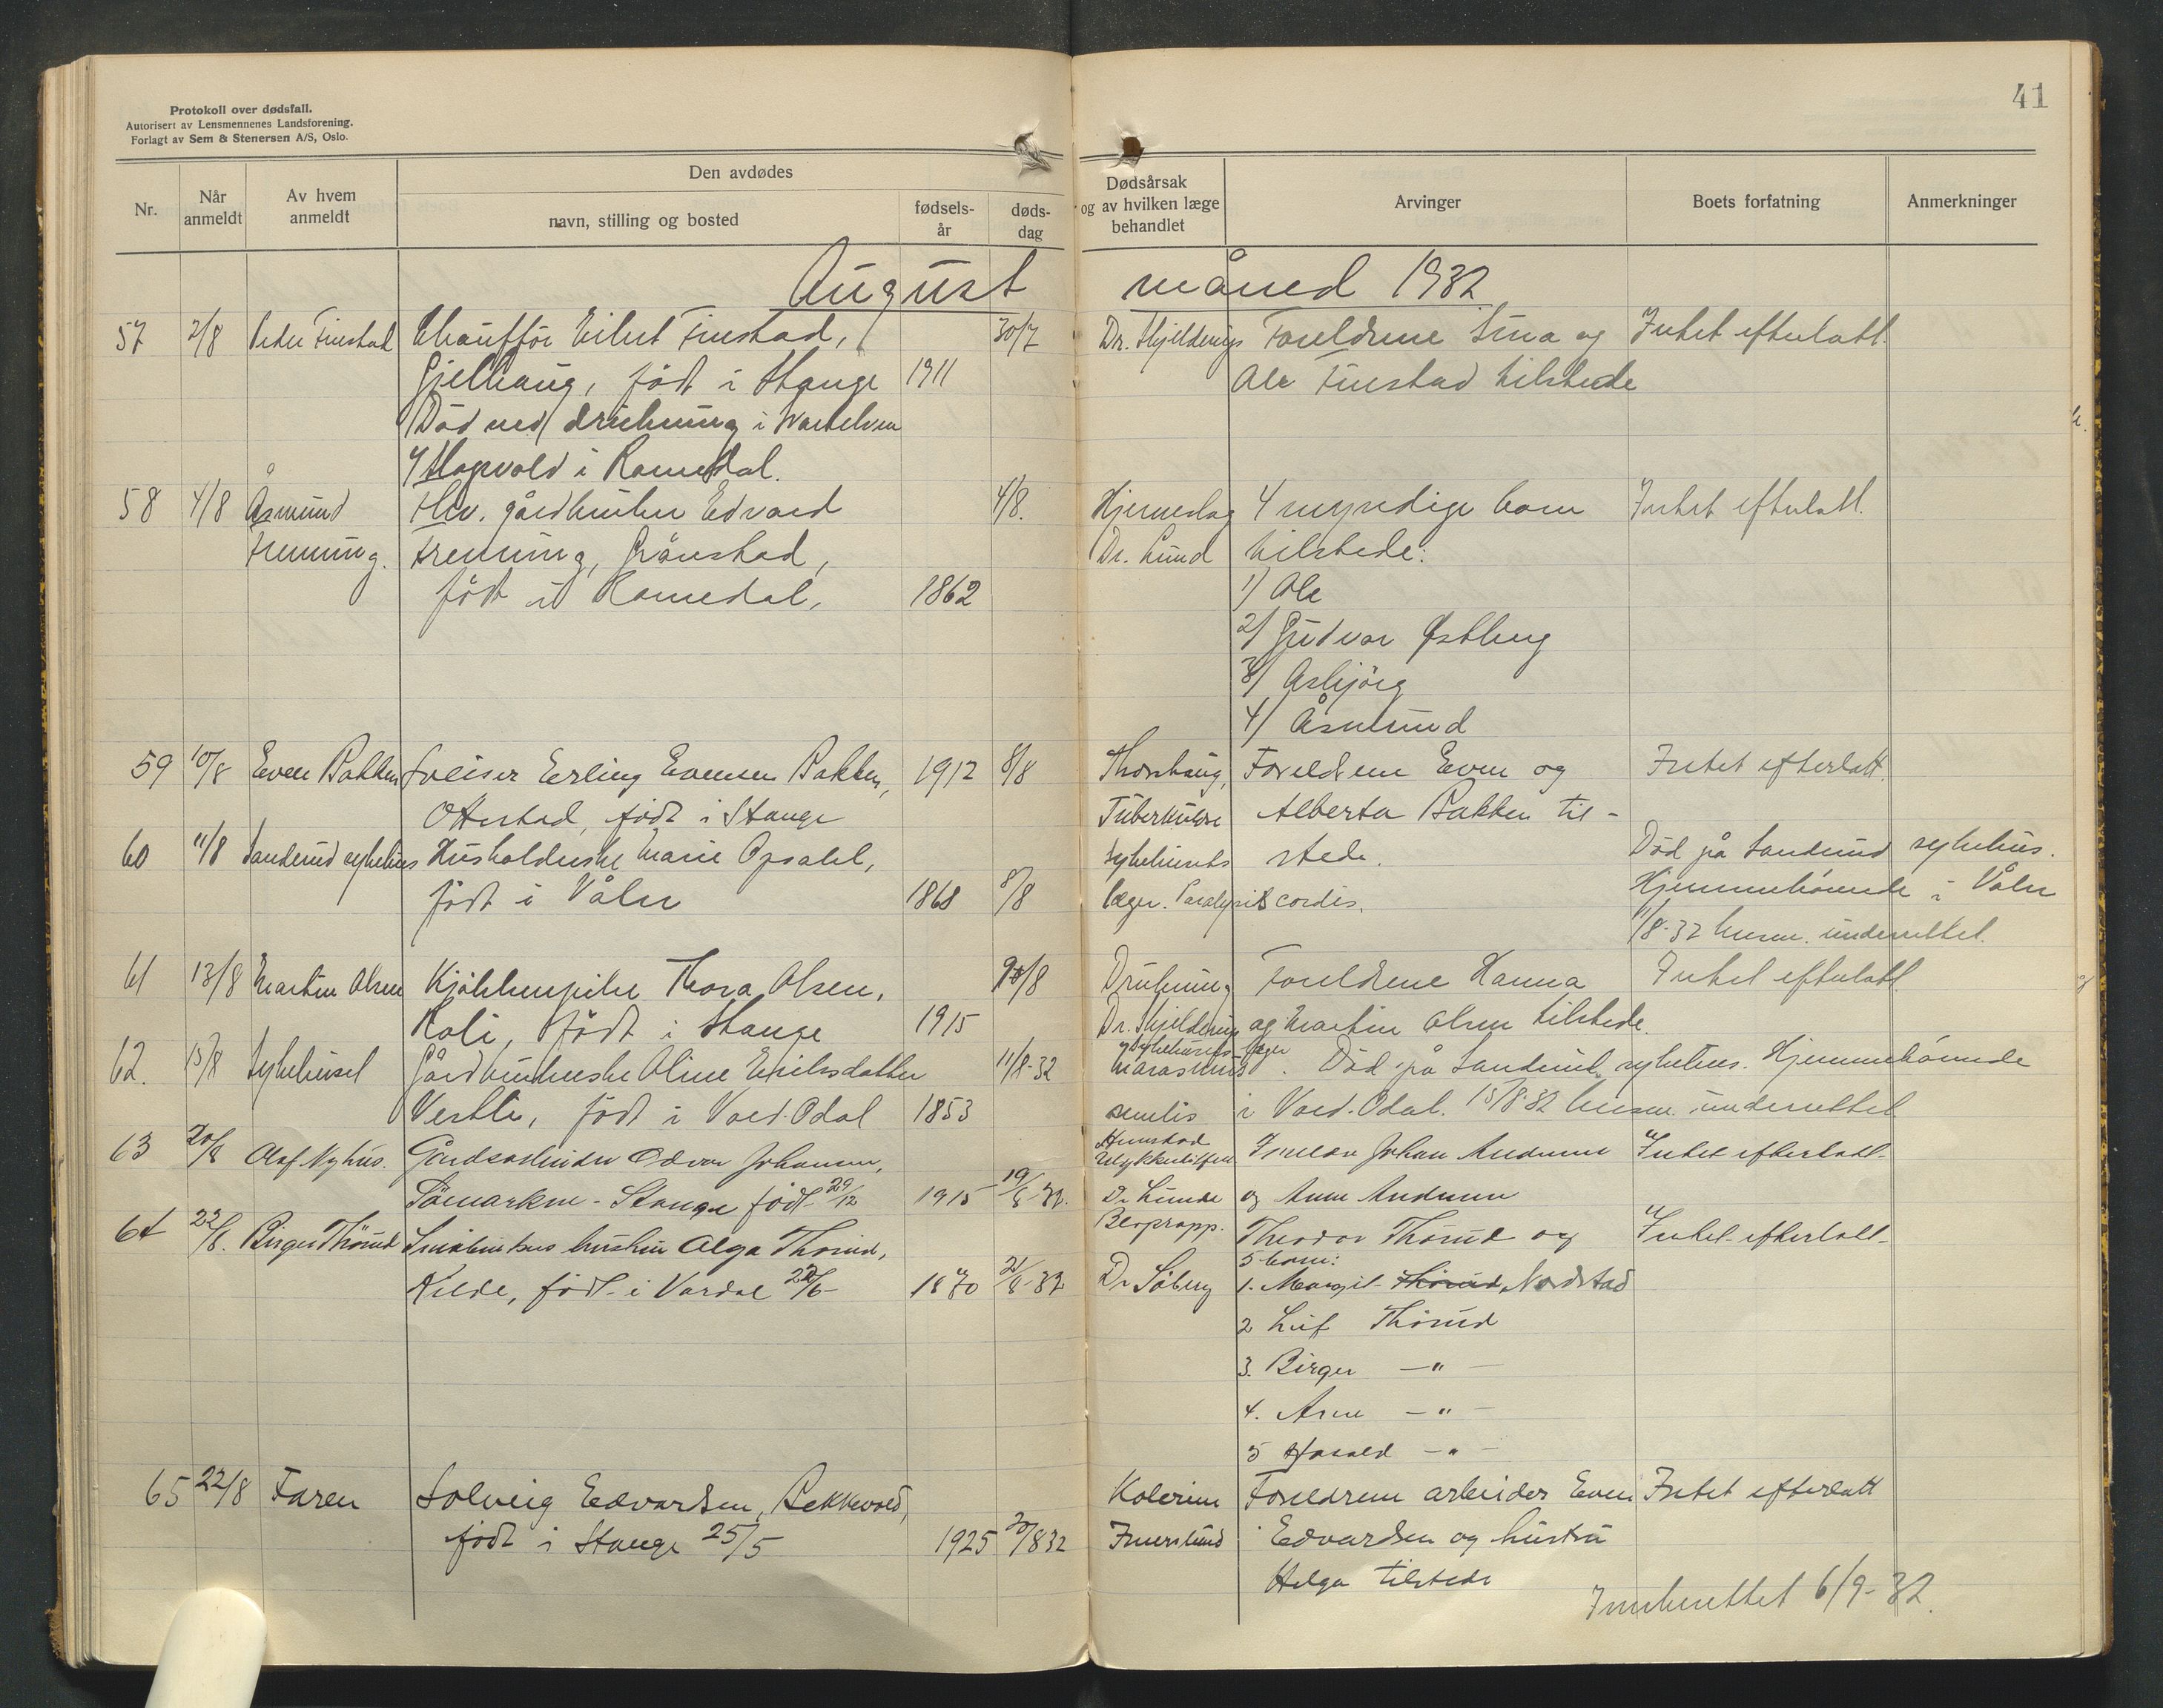 41
Protokoll over dødsfall.
Autorisert av Lensmennenes Landsforening.
Forlagt av Sem & Stenersen A/S, Oslo.
Nr.
Når anmeldt
Av hvem anmeldt
Den avdødes
navn, stilling og bosted
fødsels-år
døds-dag
Dødsårsak og av hvilken læge behandlet
Arvinger
Boets forfatning
Anmerkninger
August måned 1932
57 2/8 Peder Finstad Chauffør Eilert Finstad, 30/7 Dr. Hjeldenis Foreldrene Lina og Intet efterlatt.
Gjelhaug, født i Stange 1911 Ole Finstad tilstede
Död ved drukning i Svartelven
i Romedal.
58 4/8 Åsmund Fhv. gårdbruker Edvard 4/8. Hjerneslag 4 myndige barn Intet efterlatt.
Frenning. Frenning, Grånstad, Dr. Lund tilstede:
født i Romedal, 1862 1) Ole
2) Gudvor Østberg
3) Asbjörg
4) Åsmund
59 10/8 Even Bakken Sveiser Erling Evensen Bakken, 1912 8/8 Thorshaug, Foreldrene Even og Intet efterlatt.
Ottestad, født i Stange Tuberkulose Alberta Bakken til-
60 11/8 Sanderud sykehus Husholderske Marie Opsahl, Sykehusets stede. Död på Sanderud sykehus.
født i Våler 1868 8/8 læger. Paralysis cordis. Hjemmehörende i Våler
11/8-32 lensm. underrettet.
61 13/8 Martin Olsen Kjökkenpike Thora Olsen, 10/8 Drukning Foreldrene Hanna Intet efterlatt.
Roli, født i Stange 1915 Dr. og Martin Olsen tilstede.
62. 15/8 Sykehuset Gårdbrukerske Oline Eriksdatter 11/8-32 Sykehusets læger Marasmus. Död på Sanderud sykehus. Hjemmehörende
Vestli, født i Nord-Odal 1853 senilis i Nord-Odal. 15/8 32 lensm. underrettet
63 20/8 Olaf Nyhus. Gårdsarbeider Odvar Johansen, Ulykkestilfelle Foreldre Johan Andersen Intet efterlatt-
Sömarken - Stange født 29/12 1915 19/8-32. Dr Lunde og Anne Andersen
64 22/8. Birger Thorud Småbrukers hustru Olga Thorud, Blopropp. Theodor Thorud og Intet efterlatt-
5 barn:
Kilde, født i Vardal 22/6- 1870 21/8-32 Dr Söberg 1. Margit Thorud, Nordstad
2 Leif Thorud
3. Birger -"-
4. Arne -"-
5 Harald -"-
65 22/8 Faren Solveig Edvardsen, Bekkevold, Kolerine Foreldrene arbeider Even Intet efterlatt
født i Stange 25/5 1925 20/8 32 Imerslund Edvardsen og hustru
Helga tilstede
Innberettet 6/9-32.